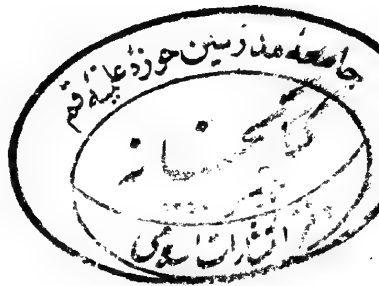 جامعه مدرسین حوزه علمیه قم
کتابخانه
دفتر انتشارات اسلامی